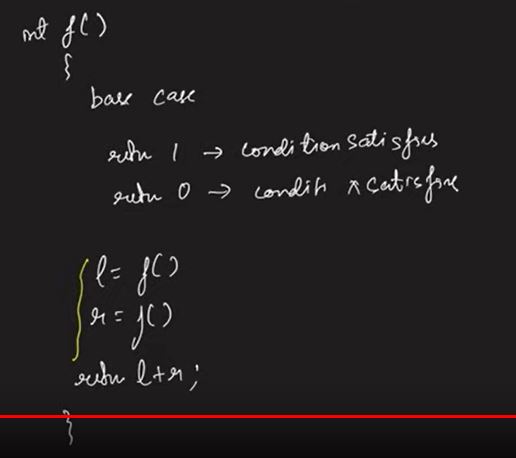 int f()
{
base case
return 1 → condition satisfies
return 0 → conditn x satisfies
l = f()
r = f()
return l+r;
}